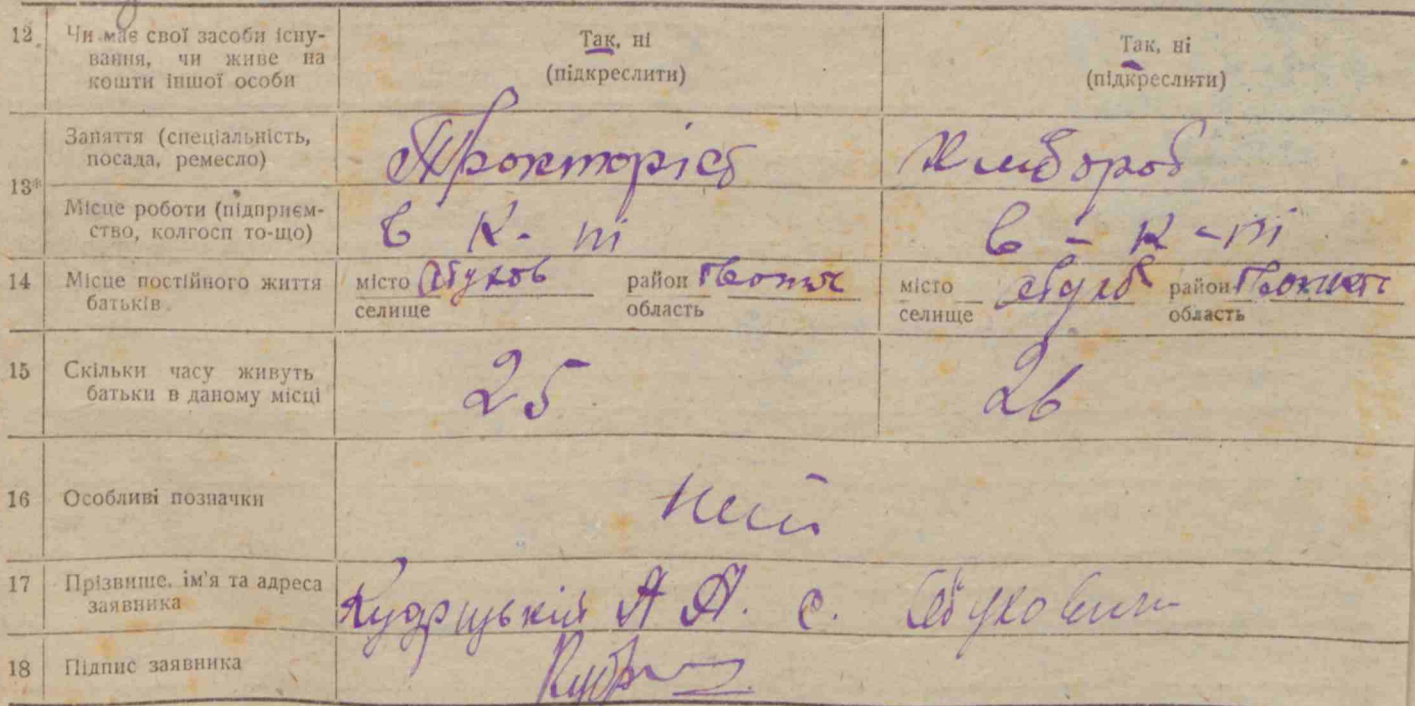 12. Чи має свої засоби існу-
вання, чи живе на
кошти іншої особи
Так, ні
(підкреслити)
Так, ні
(підкреслити)
13* Заняття (спеціальність,
посада, ремесло)
Тромторіст
Хлибороб
Місце роботи (підприєм-
ство, колгосп то-що)
в к-пі
в-к-пі
14 Місце постійного життя
батьків
місто
селище
район
область
місто
селище
район
область
15 Скільки часу живуть
батьки в даному місці
25
26
16 Особливі позначки
17 Прізвище, ім'я та адреса
заявника
Кудрицькій А А. с.
18 Підпис заявника